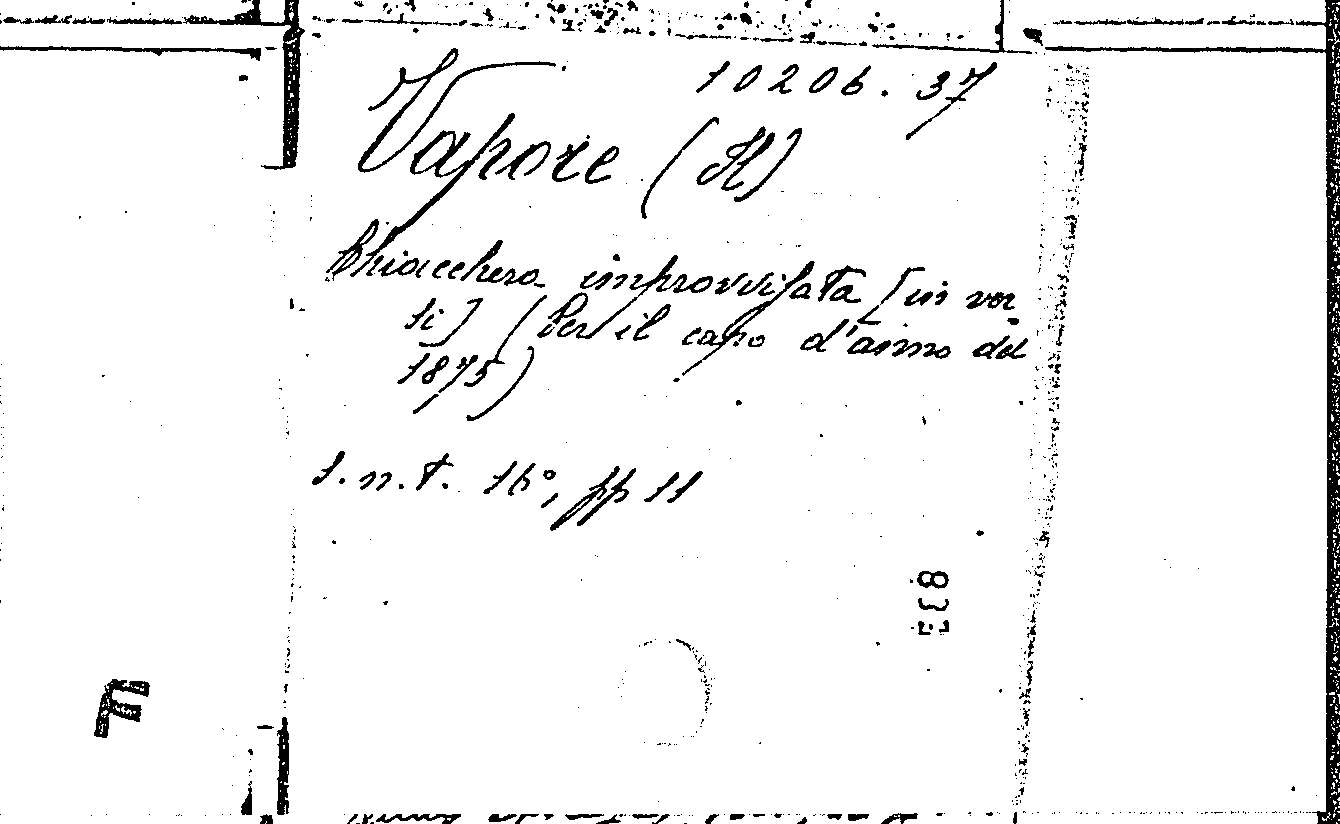 10206.37
Vapore (Il)
Chiacchera improvvisata [in ver
si] (Per il capo d'anno del
1875)
s.n.t. 16°, pp 11
833
F